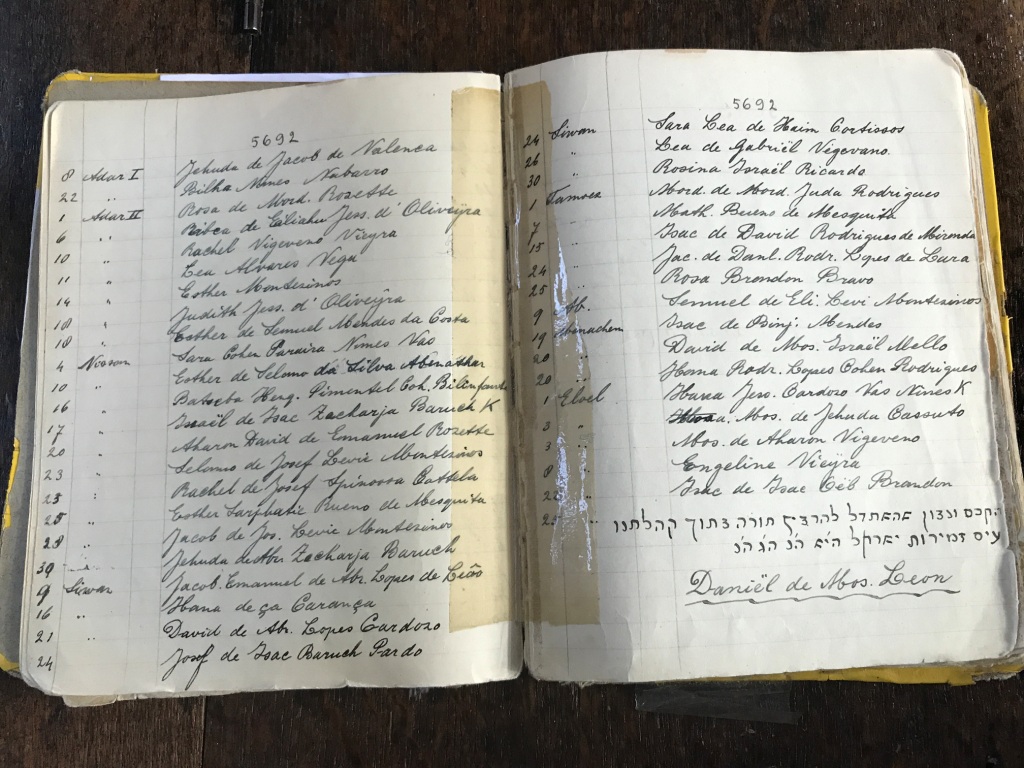 5692
8 Adar I Jehuda de Jacob de Valenca
22 Bilha Nunes Nabarro
1 Adar II Rosa de Mord. Rosette
6 " Ribca de Eliahu Jess. d'Oliveÿra
10 " Rachel Vigeveno Vieyra
11 " Lea Alvares Vega
14 " Esther Montesinos
18 " Judith Jess. d'Oliveÿra
18 " Esther de Semuel Mendes da Costa
4 Nissan Sara Cohen Paraira Nunes Vas
10 " Esther de Selomo da Silva Abenathar
16 " Batseba Henq. Pimentel Coh. Belinfante
17 " Israël de Isac Zacharja Baruch K
20 " Aharon David de Emanuel Rosette
23 " Selomo de Josef Levie Montesinos
23 " Rachel de Josef Spinossa Cattela
25 " Esther Sarphatie Bueno de Mesquita
28 " Jacob de Jos. Levie Montesinos
30 " Jehuda de Abr. Zacharja Baruch
9 Siwan Jacob. Emanuel de Abr. Lopes de Leão
16 " Hana de ça Carança
21 " David de Abr. Lopes Cardozo
24 Josef de Isac Baruch Pardo
5692
24 Siwan Sara Lea de Haim Cortissos
26 " Lea de Gabriël Vigevano
30 " Rosina Israël Ricardo
1 Tamoez Mord. de Mord. Juda Rodrigues
" Math. Bueno de Mesquita
7 Isac de David Rodrigues de Miranda
15 Jac. de Danl. Rodr. Lopes de Lara
24 Rosa Brandon Bravo
25 Semuel de Eli. Levi Montesinos
9 Ab. Isac de Binj. Mendes
19 Menachem David de Mos. Israël Mello
20 Hana Rodr. Lopes Cohen Rodrigues
20 " Hana Jess. Cardozo Vas Nunes K
1 Eloel Mos. de Jehuda Cassuto
3 " Mos. de Aharon Vigeveno
3 Engeline Vieÿra
8 " Isac de Isac Oëb Brandon
החכם ונבון שהשתדל להרביץ תורה בתוך קהלתנו
נעים זמירות ישראל
Daniël de Mos. Leon